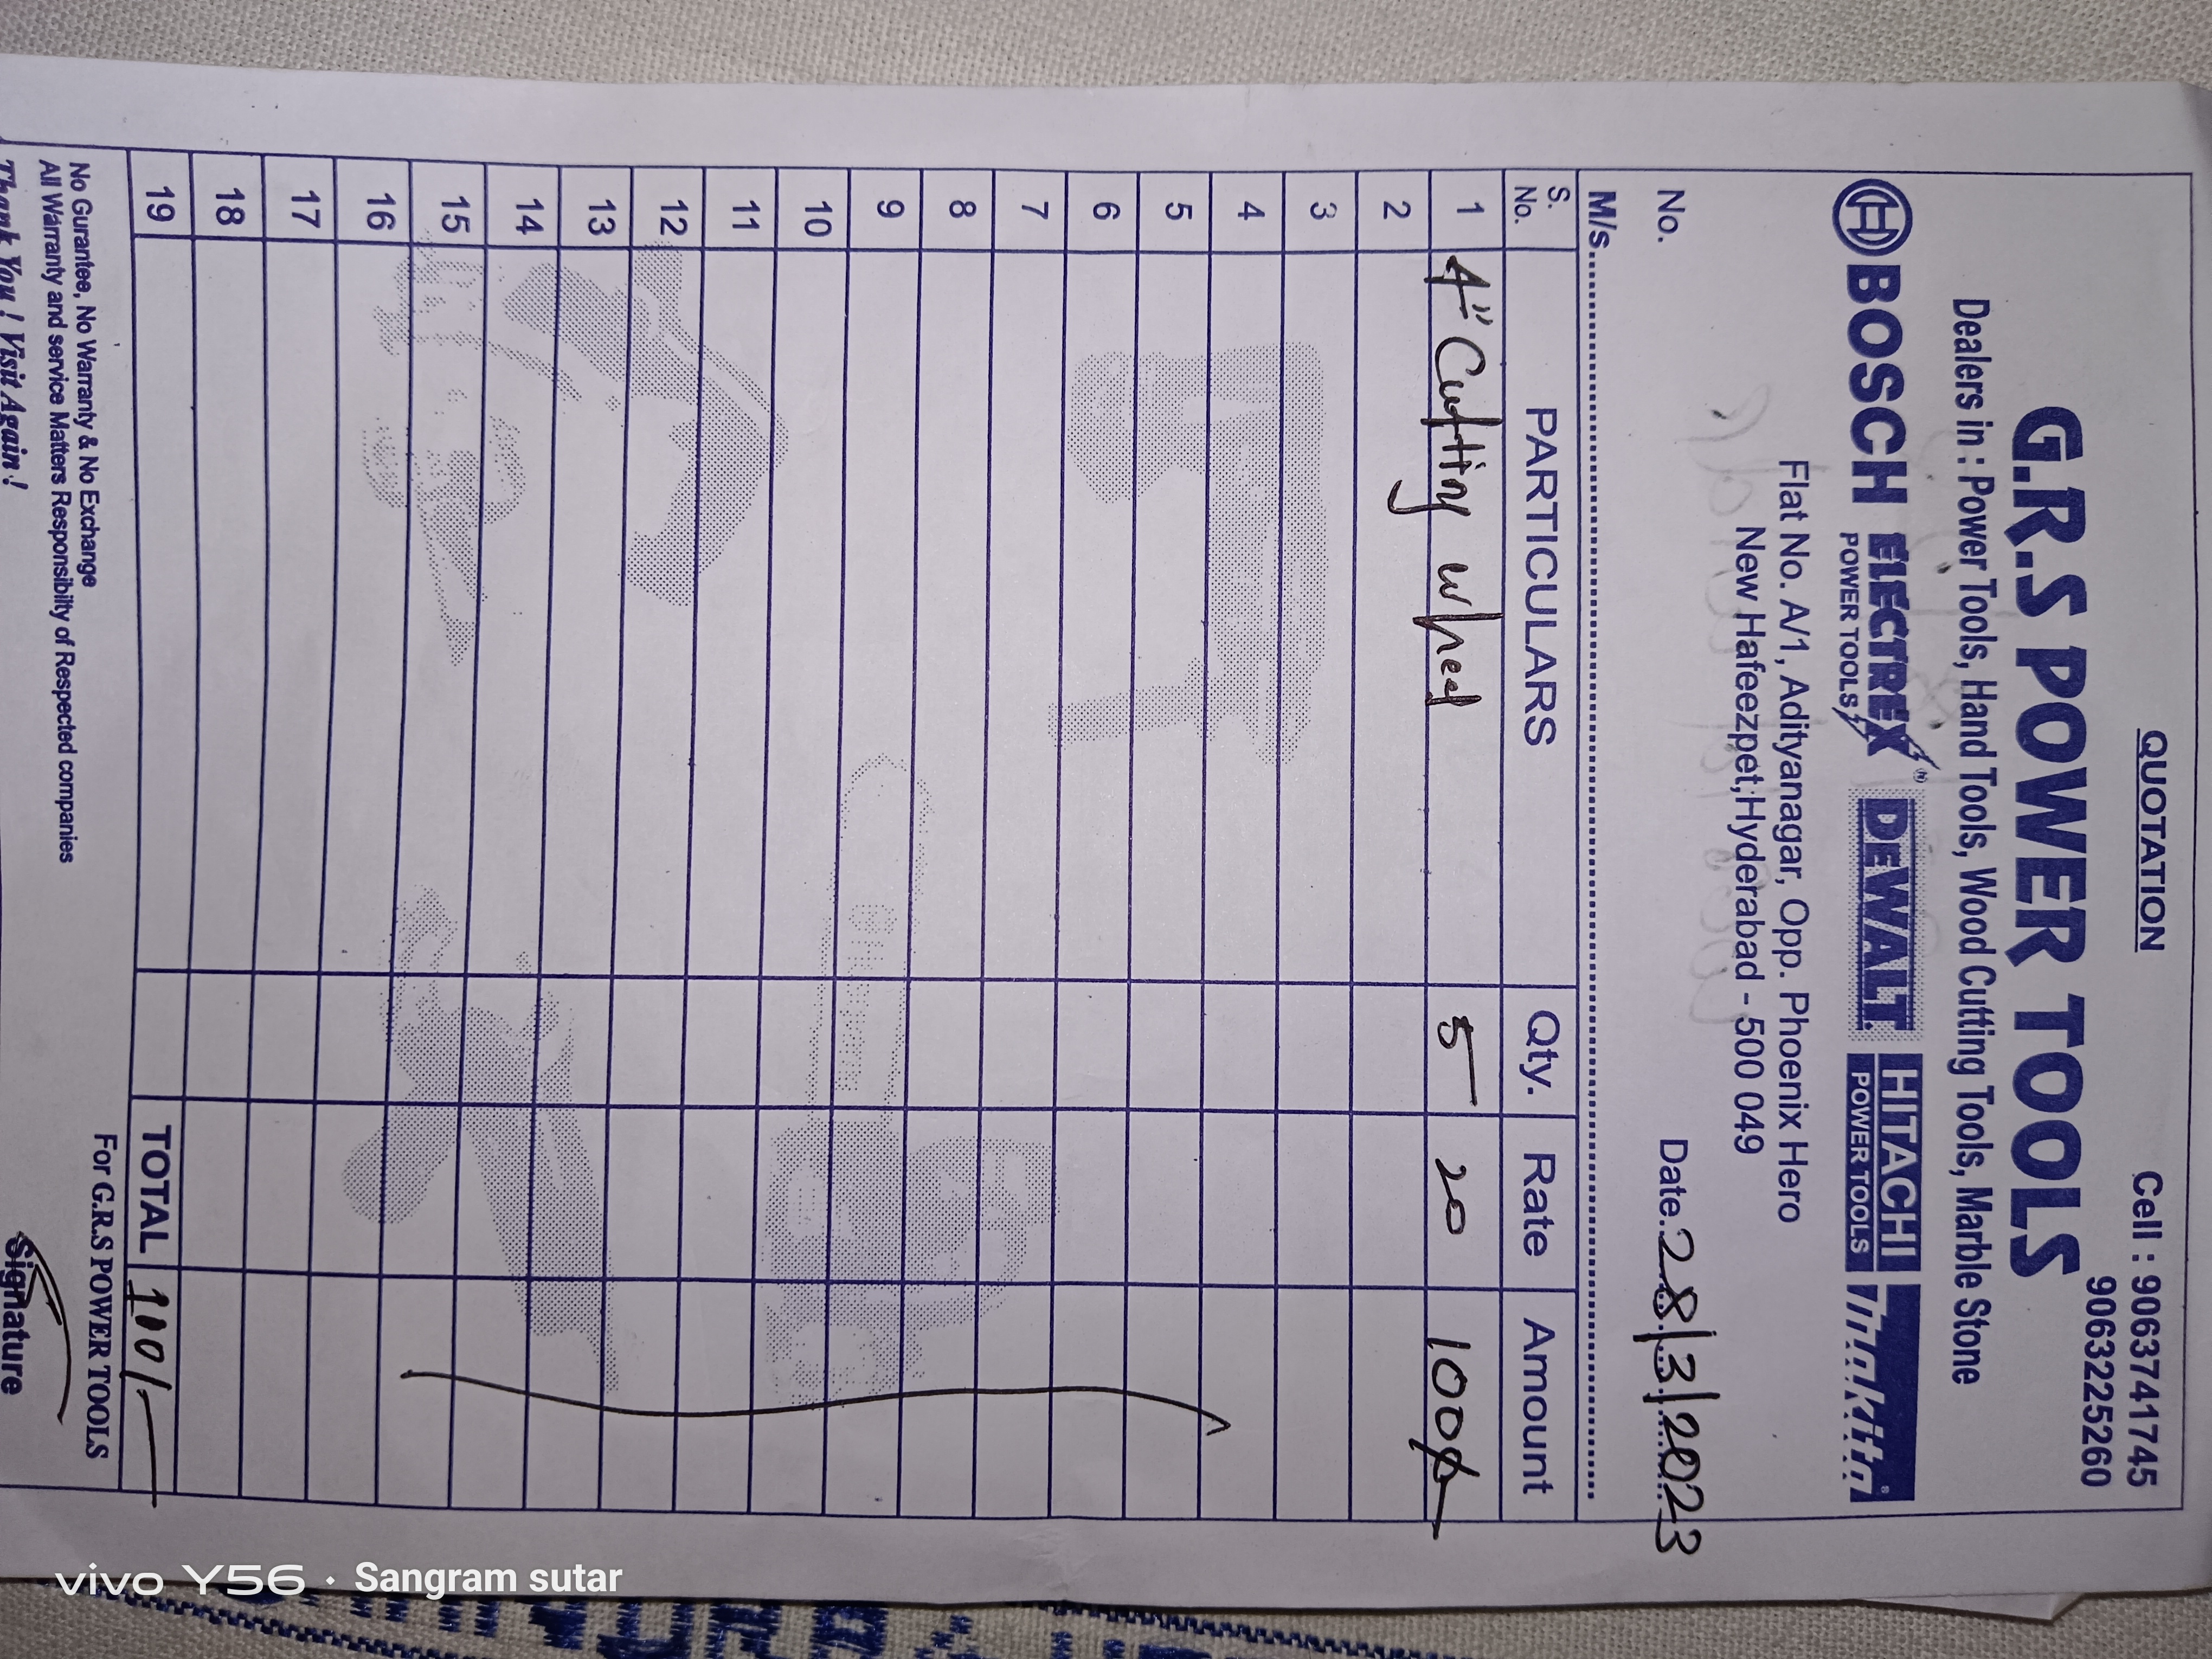 QUOTATION
Cell : 9063741745
9063225260
G.R.S POWER TOOLS
Dealers in : Power Tools, Hand Tools, Wood Cutting Tools, Marble Stone
BOSCH ELECTREX POWER TOOLS DEWALT HITACHI POWER TOOLS makita
Flat No. A/1, Adityanagar, Opp. Phoenix Hero
New Hafeezpet, Hyderabad - 500 049
No. Date. 28/3/2023
M/s.
S. No. PARTICULARS Qty. Rate Amount
1 4" Cutting wheel 5 20 100/-
2
3
4
5
6
7
8
9
10
11
12
13
14
15
16
17
18
19 TOTAL 100/-
No Gurantee, No Warranty & No Exchange
All Warranty and service Matters Responsibilty of Respected companies
Thank You ! Visit Again !
For G.R.S POWER TOOLS
Signature
vivo Y56 · Sangram sutar